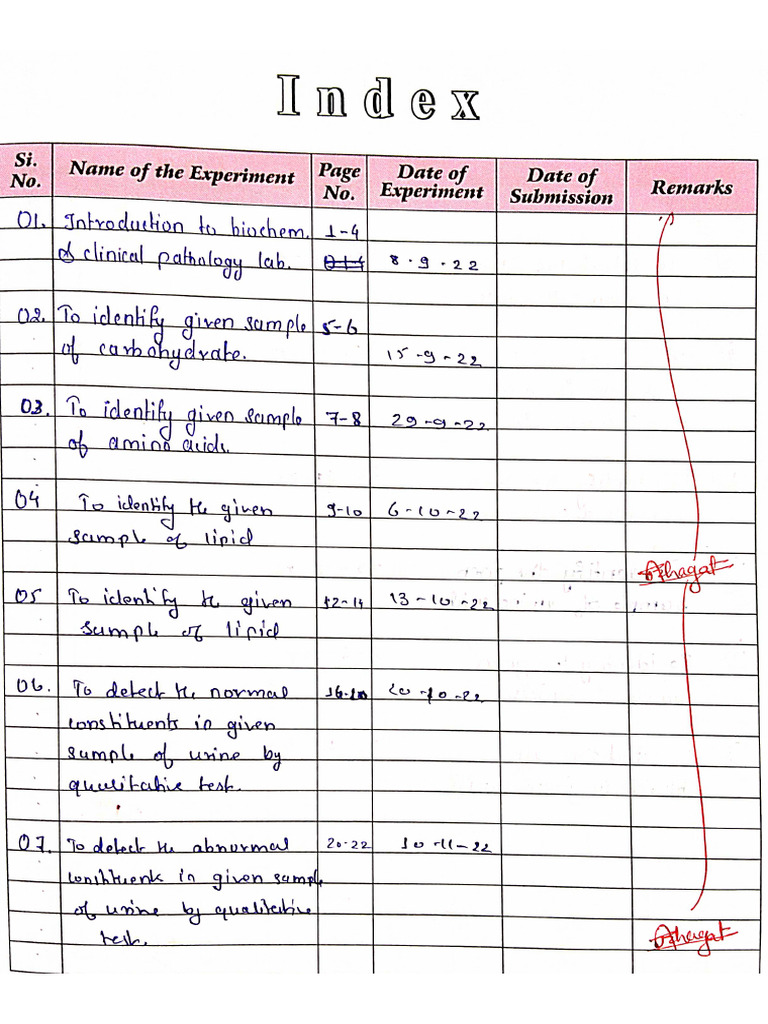 Index
Si. No. Name of the Experiment Page No. Date of Experiment Date of Submission Remarks
01. Introduction to biochem. 1-4
& clinical pathology lab. 8.9.22
02. To identify given sample 5-6
of carbohydrate. 15-9-22
03. To identify given sample 7-8 29-9-22
of amino acids.
04 To identify the given 9-10 6-10-22
sample of lipid
05 To identify the given 12-14 13-10-22
sample of lipid
06. To detect the normal 20-10-22
constituents in given
sample of urine by
qualitative test.
07. To detect the abnormal 20-22 10-11-22
constituents in given sample
of urine by qualitative
test.